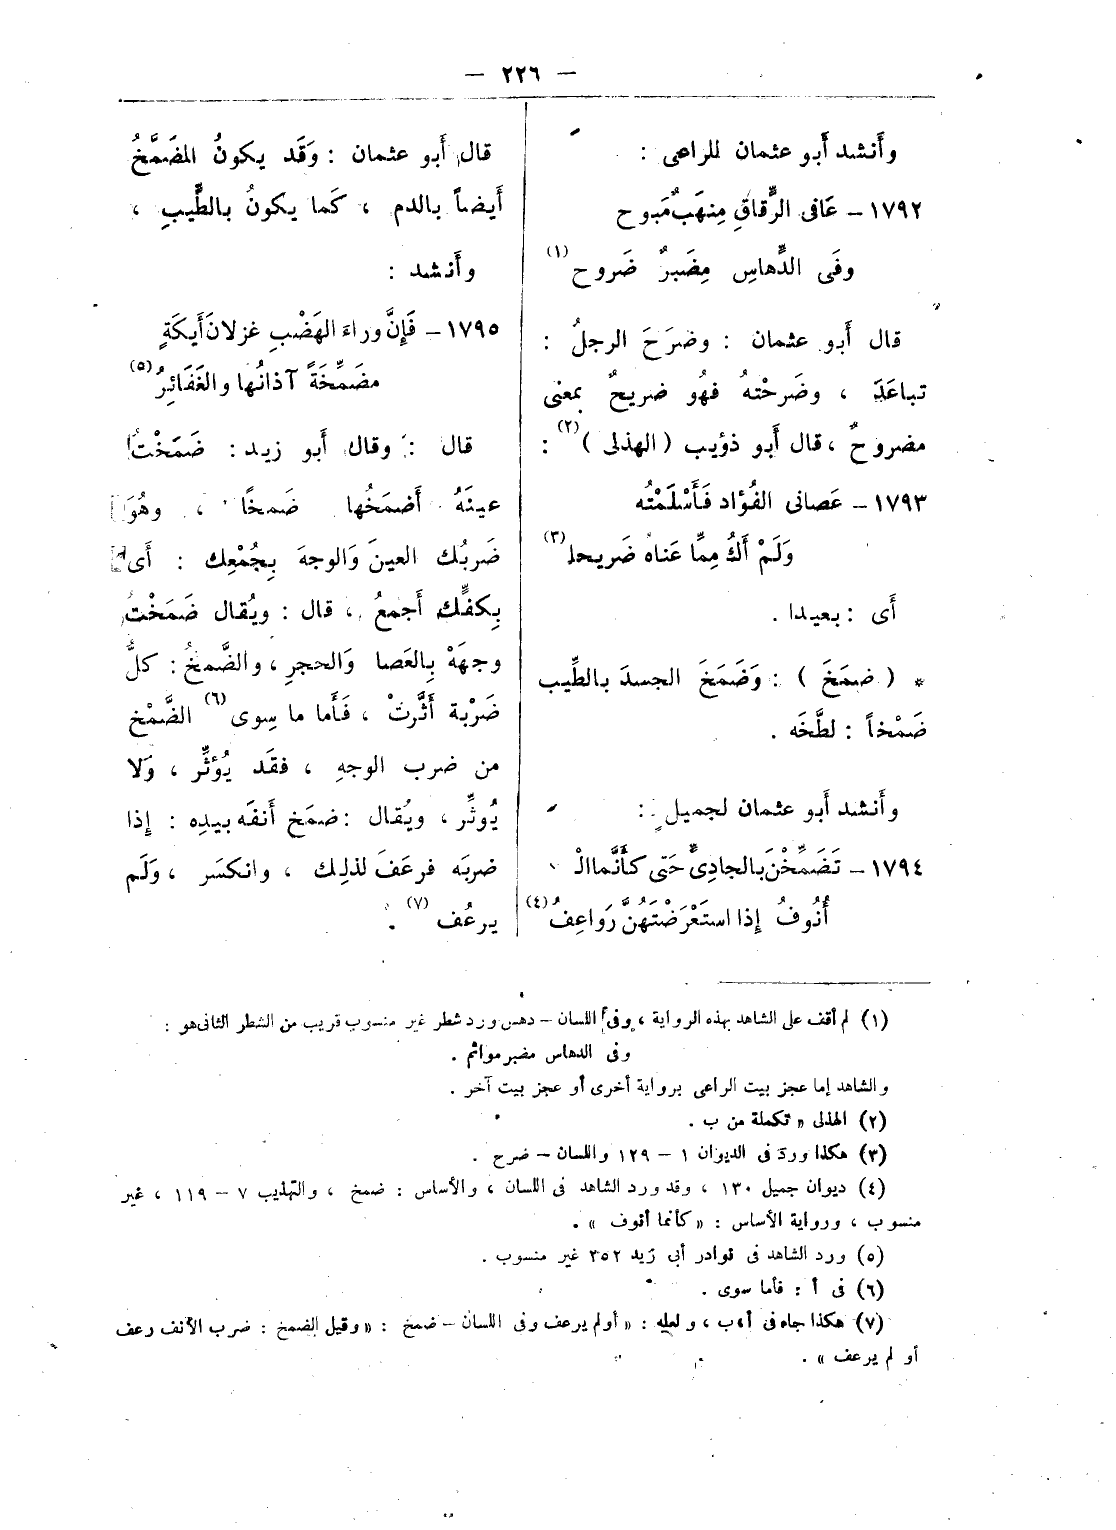 — ٢٢٦ —
وأَنشد أَبو عثمان للراعى :
١٧٩٢ – عَافى الرِّقاقِ مِنهَبٌ مَبوح
وفَى الدِّهاسِ مِضَبرٌ ضَروح (١)
قال أَبو عثمان : وضرَحَ الرجلُ :
تباعَدَ ، وضَرحْتهُ فهُو ضريحٌ بمعنى
مضروحٌ ، قال أَبو ذؤيب ( الهذلى ) (٢) :
١٧٩٣ – عَصانى الفُؤاد فَأَسْلَمْتُه
وَلَمْ أَكُ مِمَّا عَناهُ ضَريحا (٣)
أَى : بعيدا .
* ( ضمَخَ ) : وَضَمَخَ الجسدَ بالطِّيب
ضَمْخاً : لطَّخَه .
وأَنشد أَبو عثمان لجميل :
١٧٩٤ – تَضَمَّخْنَ بالجادِىِّ حَتى كأَنَّما الْ
أُنُوفُ إِذا استَعْرَضْتَهُنَّ رَواعِفُ (٤)
قال أَبو عثمان : وَقَد يكونُ المضَمَّخُ
أَيضاً بالدم ، كَما يكونُ بالطِّيبِ ،
وأَنشد :
١٧٩٥ – فَإِنَّ وراءَ الهَضْبِ غزلانَ أَيكَةٍ
مضَمَّخَةً آذانُها والغَفَائِرُ (٥)
قال : وقال أَبو زيد : ضَمَخْتُ
عينَهُ أَضمَخُها ضَمخًا ، وهُوَ
ضَربُك العينَ وَالوجهَ بِجُمْعِك : أَى
بِكفِّك أَجمعُ ، قال : ويُقال ضَمَخْتُ
وجهَهْ بِالعَصا وَالحجرِ ، والضَّمخُ : كلُّ
ضَرْبة أَثَّرتْ ، فَأَما ما سِوى (٦) الضَّمْخ
من ضرب الوجهِ ، فقَد يُؤثِّر ، وَلا
يُوثِّر ، ويُقال : ضمَخ أَنفَه بيدِه : إِذا
ضربَه فرعَفَ لذلِك ، وانكسَر ، وَلَم
يرعُف (٧) .
(١) لم أقف على الشاهد بهذه الرواية ، وفى اللسان – دهس ورد شطر غير منسوب قريب من الشطر الثانى هو :
وفى الدهاس مضبر موائم .
والشاهد إما عجز بيت الراعى برواية أخرى أو عجز بيت آخر .
(٢) الهذلى « تكملة من ب .
(٣) هكذا ورد فى الديوان ١ – ١٢٩ واللسان – ضرح .
(٤) ديوان جميل ١٣٠ ، وقد ورد الشاهد فى اللسان ، والأساس : ضمخ ، والتهذيب ٧ – ١١٩ ، غير
منسوب ، ورواية الأساس : « كأنما أنوف » .
(٥) ورد الشاهد فى نوادر أبى زيد ٣٥٢ غير منسوب .
(٦) فى أ : فأما سوى .
(٧) هكذا جاء فى أ ، ب ، ولعله : « أولم يرعف وفى اللسان – ضمخ : « وقيل الضمخ : ضرب الأنف رعف
أو لم يرعف » .